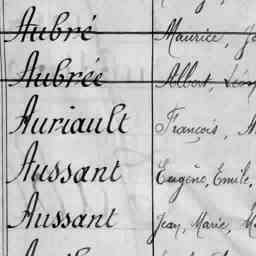 Aubré Maurice,
Aubrée Albert, Léon
Auriault François,
Aussant Eugène, Emile,
Aussant Jean, Marie,